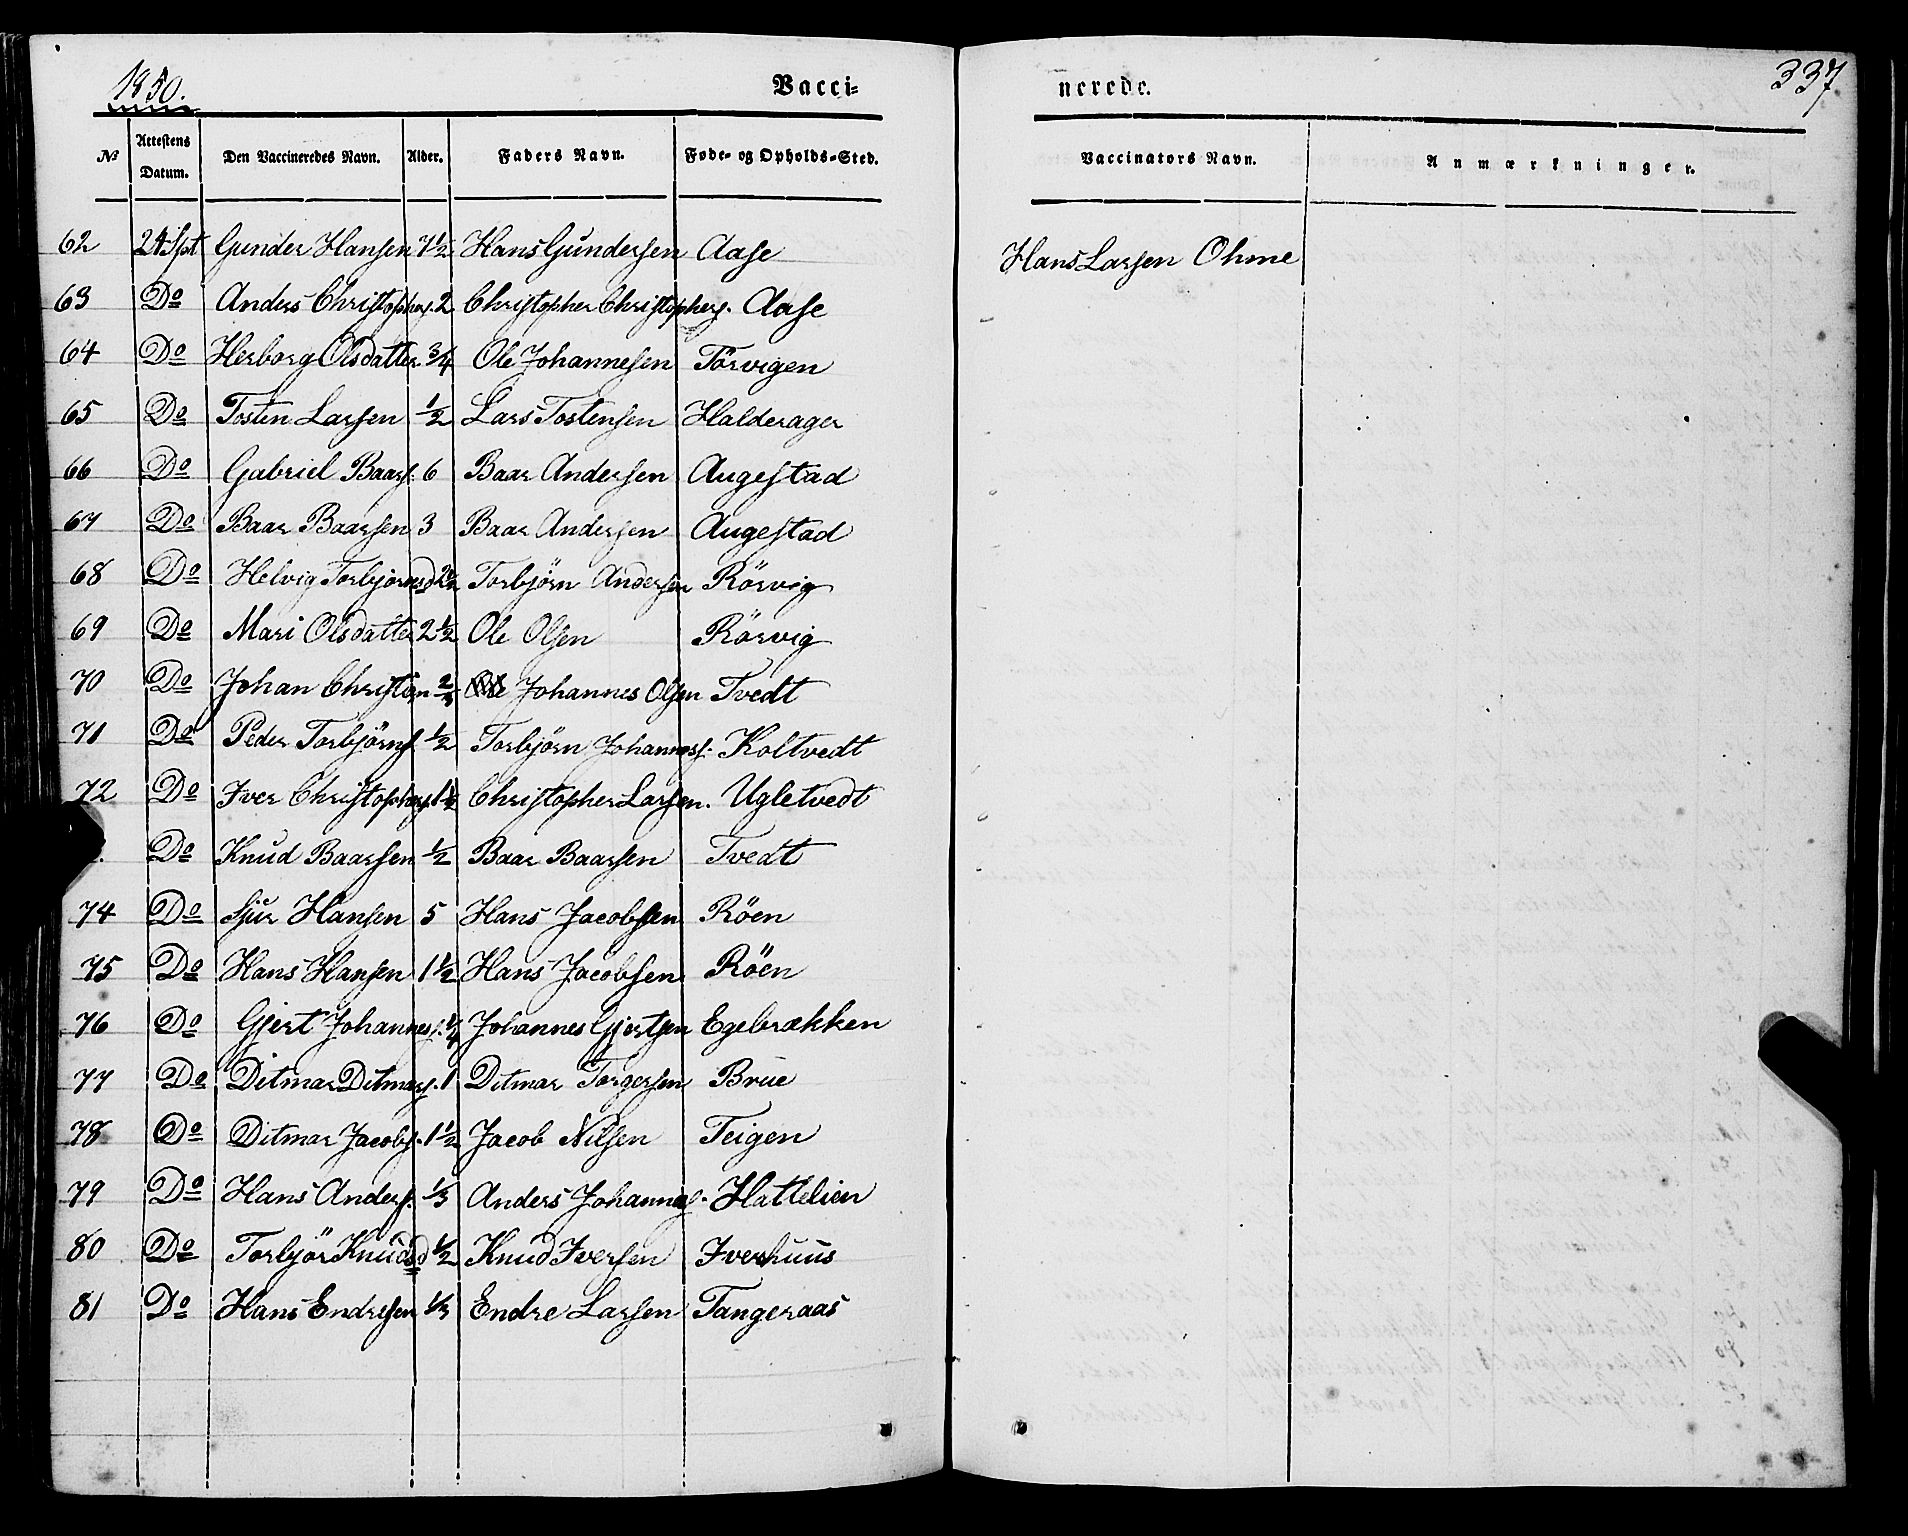 1850.
Vacci=
nerede.
337
№ Attestens Datum. Den Vaccineredes Navn. Alder. Faders Navn. Føde- og Opholds-Sted. Vaccinators Navn. Anmærkninger.
62 24 Spt Gunder Hansen 7½ Hans Gundersen Aase Hans Larsen Ohme
63 Do Anders Christophers. 2 Christopher Christophers. Aase
64 Do Herborg Olsdatter ¾ Ole Johannesen Törvigen
65 Do Tosten Larsen ½ Lars Tostensen Halderager
66 Do Gabriel Baars. 6 Baar Andersen Augestad
67 Do Baar Baarsen 3 Baar Andersen Augestad
68 Do Helvig Torbjørnsd 2½ Torbjørn Andersen Rörvig
69 Do Mari Olsdatter 2½ Ole Olsen Rörvig
70 Do Johan Christian Johannes Olsen Tvedt
71 Do Peder Torbjörns. ½ Torbjörn Johanness. Koltvedt
72 Do Iver Christophers. 1½ Christopher Larsen. Ugletvedt
Do Knud Baarsen ½ Baar Baarsen Tvedt
74 Do Sjur Hansen 5 Hans Jacobsen Röen
75 Do Hans Hansen 1½ Hans Jacobsen Röen
76 Do Gjert Johanness. ¼ Johannes Gjertsen Egebrækken
77 Do Ditmar Ditmars. 1 Ditmar Torgersen Brue
78 Do Ditmar Jacobs. 1½ Jacob Nilsen Teigen
79 Do Hans Anders. ⅓ Anders Johannes. Hattelien
80 Do Torbjör Knudsd ½ Knud Iversen Iverhuus
81 Do Hans Endresen ⅓ Endre Larsen Tangeraas